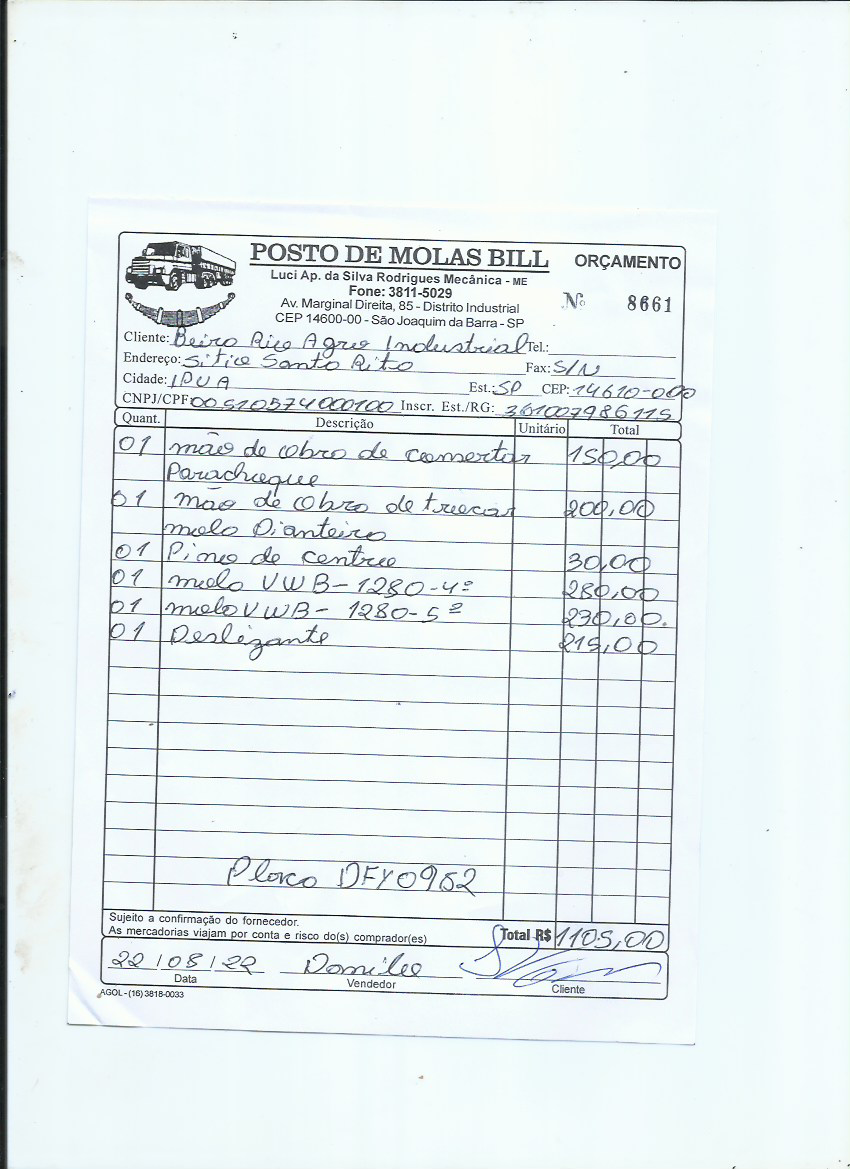 POSTO DE MOLAS BILL
ORÇAMENTO
Luci Ap. da Silva Rodrigues Mecânica - ME
Fone: 3811-5029
Av. Marginal Direita, 85 - Distrito Industrial
CEP 14600-00 - São Joaquim da Barra - SP
Nº 8661
Cliente: Beira Rio Agro Industrial Tel.:
Endereço: Sitio Santa Rita Fax: S/N
Cidade: IPUA Est.: SP CEP: 14610-000
CNPJ/CPF 00510574000100 Inscr. Est./RG: 361007986115
Quant. Descrição Unitário Total
01 mão de obra de consertar 150,00
Parachoque
01 mão de obra de trocar 200,00
mola Dianteira
01 Pino de centro 30,00
01 mola VWB-1280-4ª 280,00
01 mola VWB-1280-5ª 230,00.
01 Deslizante 215,00
Placa DFY0952
Sujeito a confirmação do fornecedor.
As mercadorias viajam por conta e risco do(s) comprador(es)
Total R$ 1105,00
22/08/22 Danilo
Data Vendedor Cliente
AGOL - (16) 3818-0033